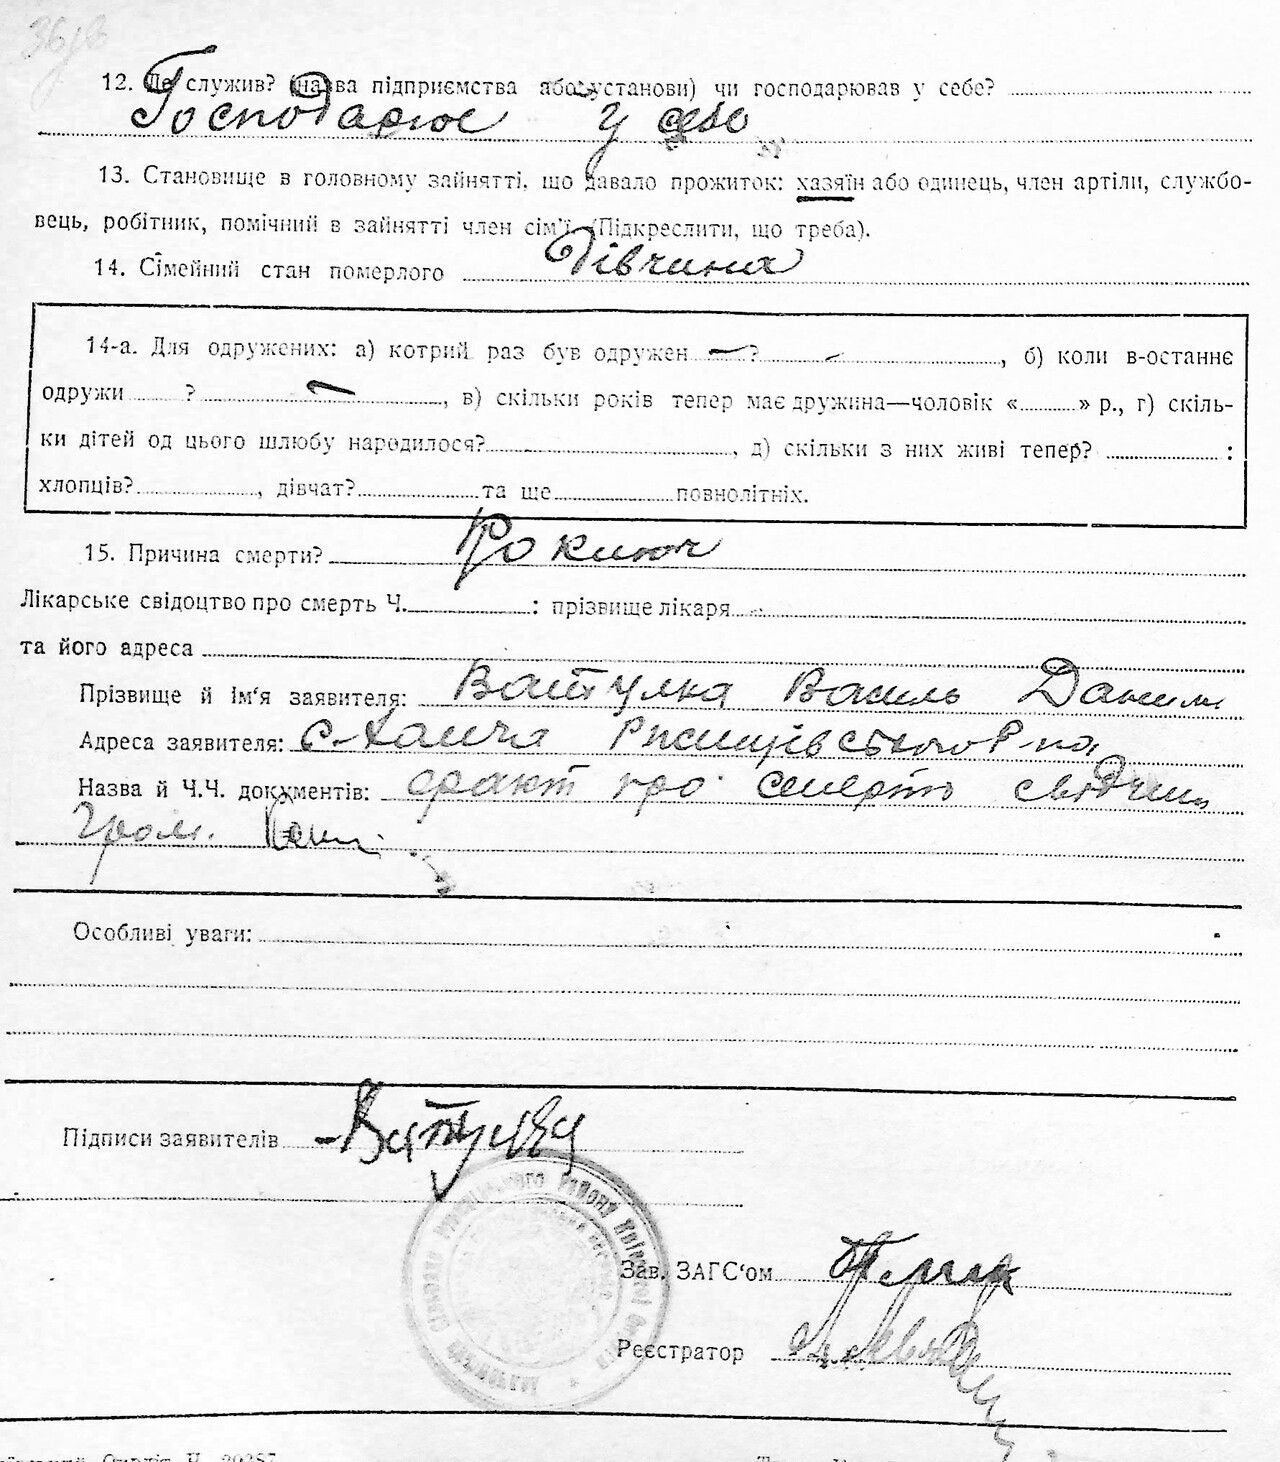 12. Де служив? (назва підприємства або установи) чи господарював у себе?
Господарює у себе
13. Становище в головному зайнятті, що давало прожиток: хазяїн або одинець, член артіли, службо-
вець, робітник, помічний в зайнятті член сім'ї. (Підкреслити, що треба).
14. Сімейний стан померлого Дівчина
14-а. Для одружених: а) котрий раз був одружен — ? —, б) коли в-останнє
одружи ? —, в) скільки років тепер має дружина—чоловік « » р., г) скіль-
ки дітей од цього шлюбу народилося? , д) скільки з них живі тепер? :
хлопців? , дівчат? та ще повнолітніх.
15. Причина смерти?
Лікарське свідоцтво про смерть Ч. : прізвище лікаря
та його адреса
Прізвище й ім'я заявителя: Ватулка Василь Данил
Адреса заявителя: с. Ханча Ржищівського Р-на
Назва й Ч.Ч. документів: факт про смерть свідчить
гром.
Особливі уваги:
Підписи заявителів Ватулка
Району Київської
Зав. ЗАГС'ом
Реєстратор